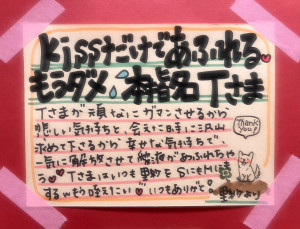 Kissだけであふれる
もうダメ 本指名Tさま
Tさまが頑なにガマンさせるから
悲しい気持ちと、会えた時に沢山
求めて下さるから幸せな気持ちで
一気に解放させて
あふれちゃ
う Tさまはいつも
をSにもMに
する
いつもありがとう
より
Thank
You!